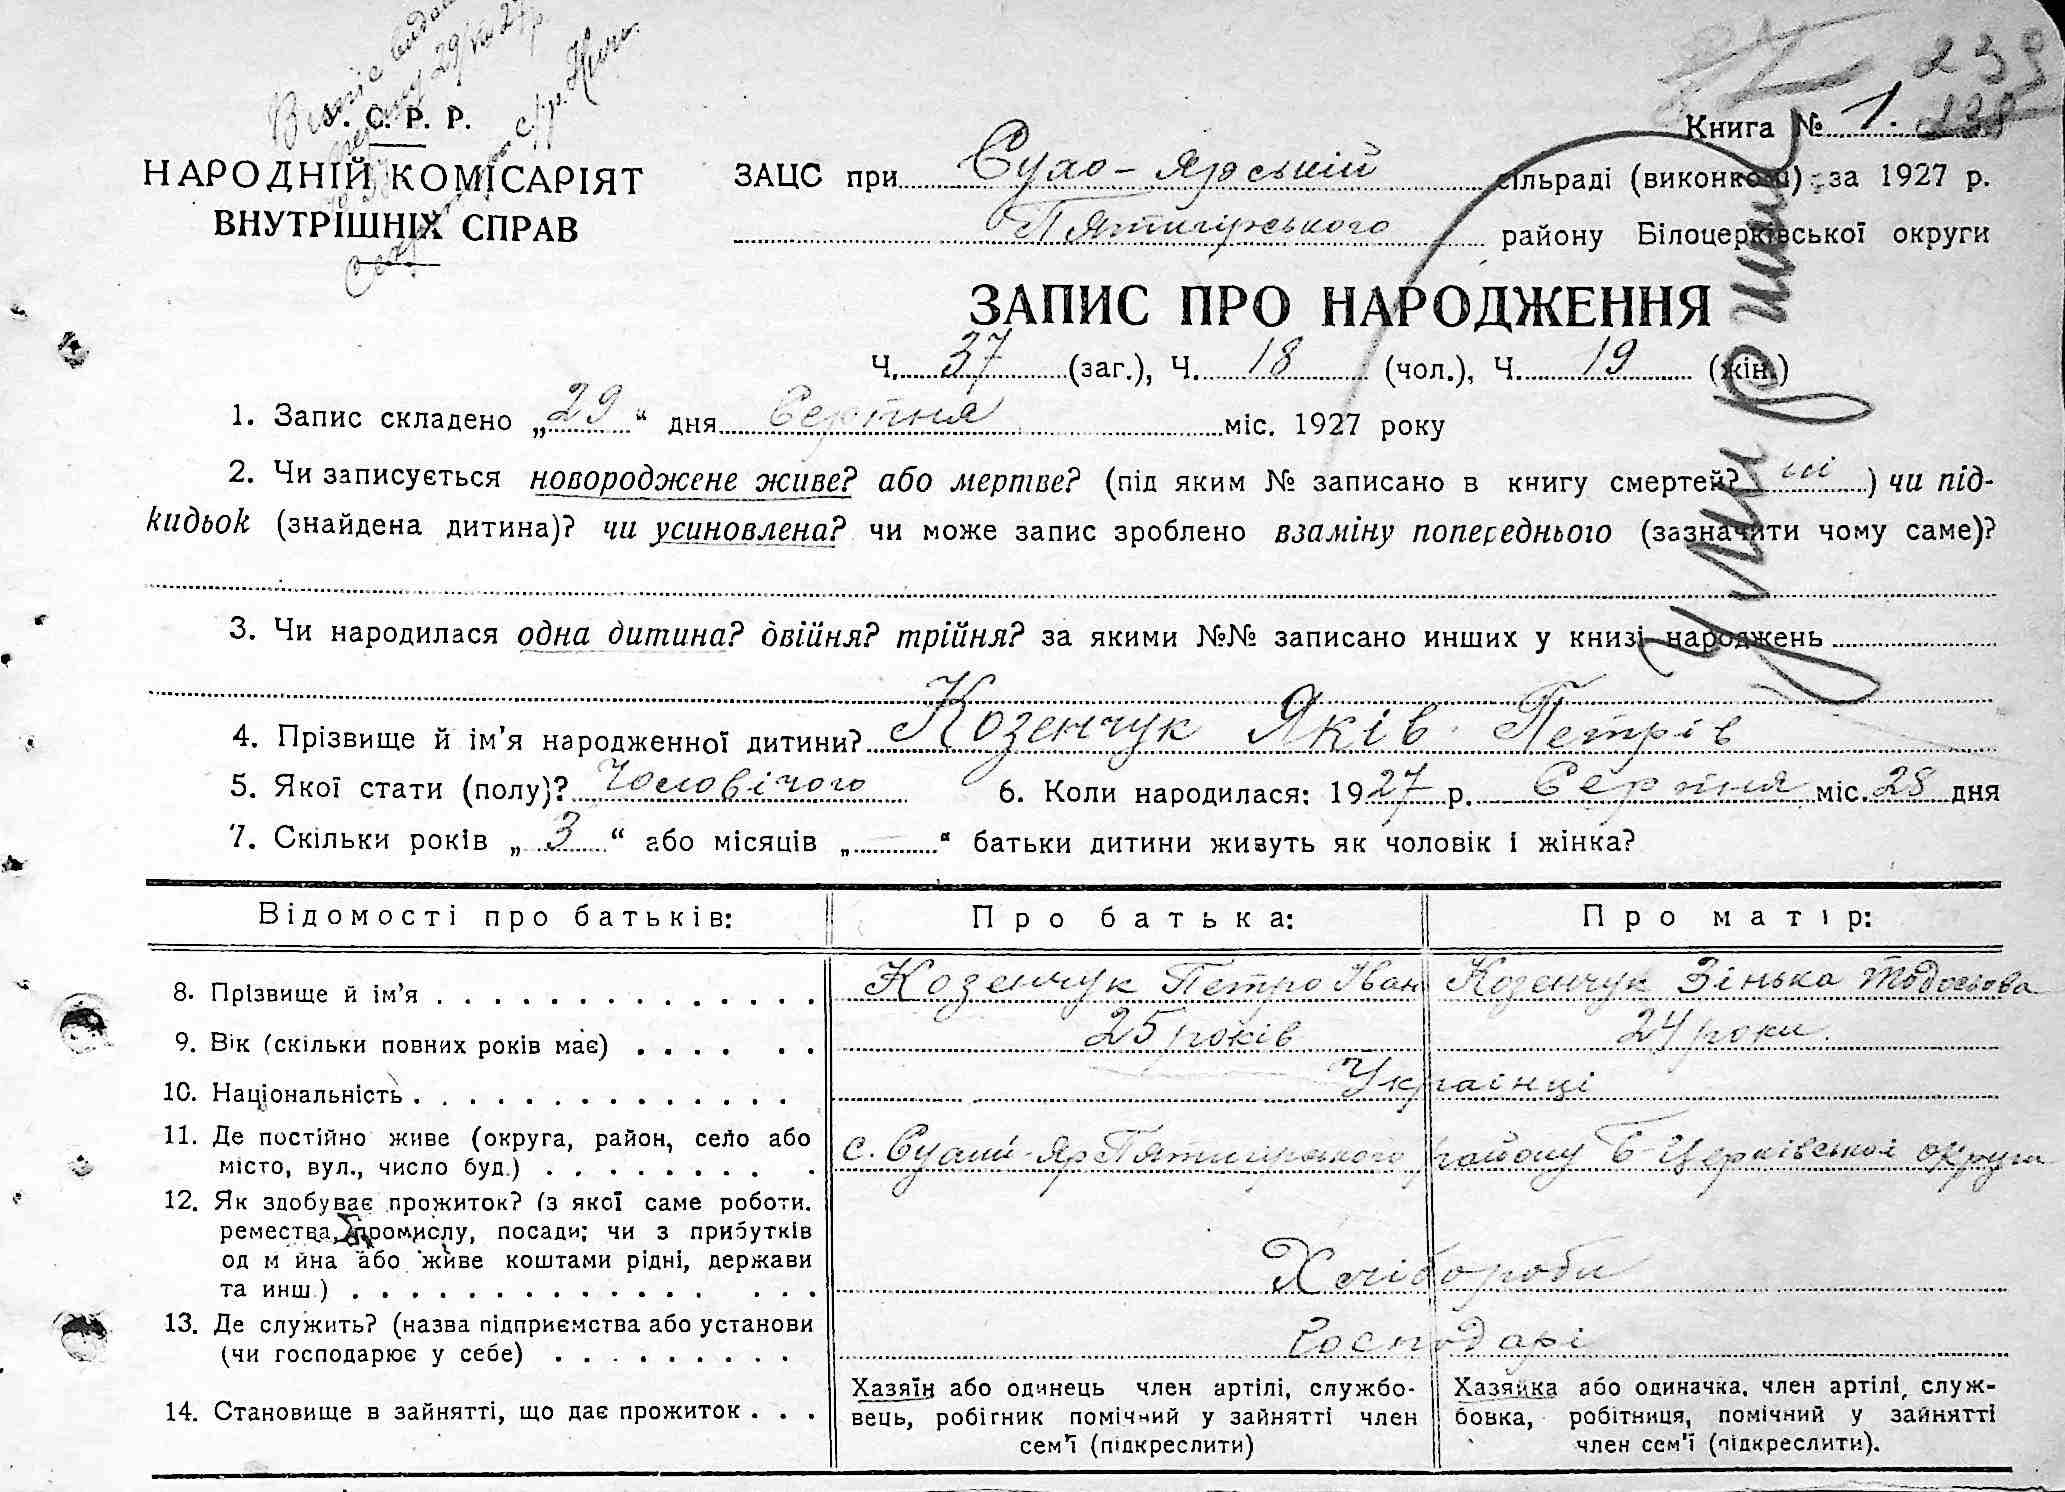 Виппіс видано
29/VIII 27 р.
У. С. Р. Р.
НАРОДНІЙ КОМІСАРІЯТ
ВНУТРІШНІХ СПРАВ
239
Книга № 1.
ЗАЦС при Сухо-Ярській сільраді (виконкомі) за 1927 р.
Пятигірського району Білоцерківської округи
умерший
ЗАПИС ПРО НАРОДЖЕННЯ
Ч. 37 (заг.), Ч. 18 (чол.), Ч. 19 (жін.)
1. Запис складено „29“ дня Серпня міс. 1927 року
2. Чи записується новороджене живе? або мертве? (під яким № записано в книгу смертей? ні) чи під-
кидьок (знайдена дитина)? чи усиновлена? чи може запис зроблено взаміну попереднього (зазначити чому саме)?
3. Чи народилася одна дитина? двійня? трійня? за якими №№ записано инших у книзі народжень
4. Прізвище й ім'я народженної дитини? Козенчук Яків Петрів
5. Якої стати (полу)? Чоловічого 6. Коли народилася: 1927 р. Серпня міс. 28 дня
7. Скільки років „3“ або місяців „—“ батьки дитини живуть як чоловік і жінка?
Відомості про батьків: Про батька: Про матір:
8. Прізвище й ім'я Козенчук Петро Іван Козенчук Зінька Тодосьова
9. Вік (скільки повних років має) 25 років 24 роки.
10. Національність Українці
11. Де постійно живе (округа, район, село або
місто, вул., число буд.) с. Сухий-Яр Пятигірського району Б-Церківської округи
12. Як здобуває прожиток? (з якої саме роботи.
ремества, промислу, посади; чи з прибутків
од м йна або живе коштами рідні, держави
та инш.) Хлібороби
13. Де служить? (назва підприємства або установи
(чи господарює у себе) Господарі
14. Становище в зайнятті, що дає прожиток
Хазяїн або одинець член артілі, службо-
вець, робігник помічний у зайнятті член
сем'ї (підкреслити)
Хазяйка або одиначка, член артілі, служ-
бовка, робітниця, помічний у зайнятті
член сем'ї (підкреслити).